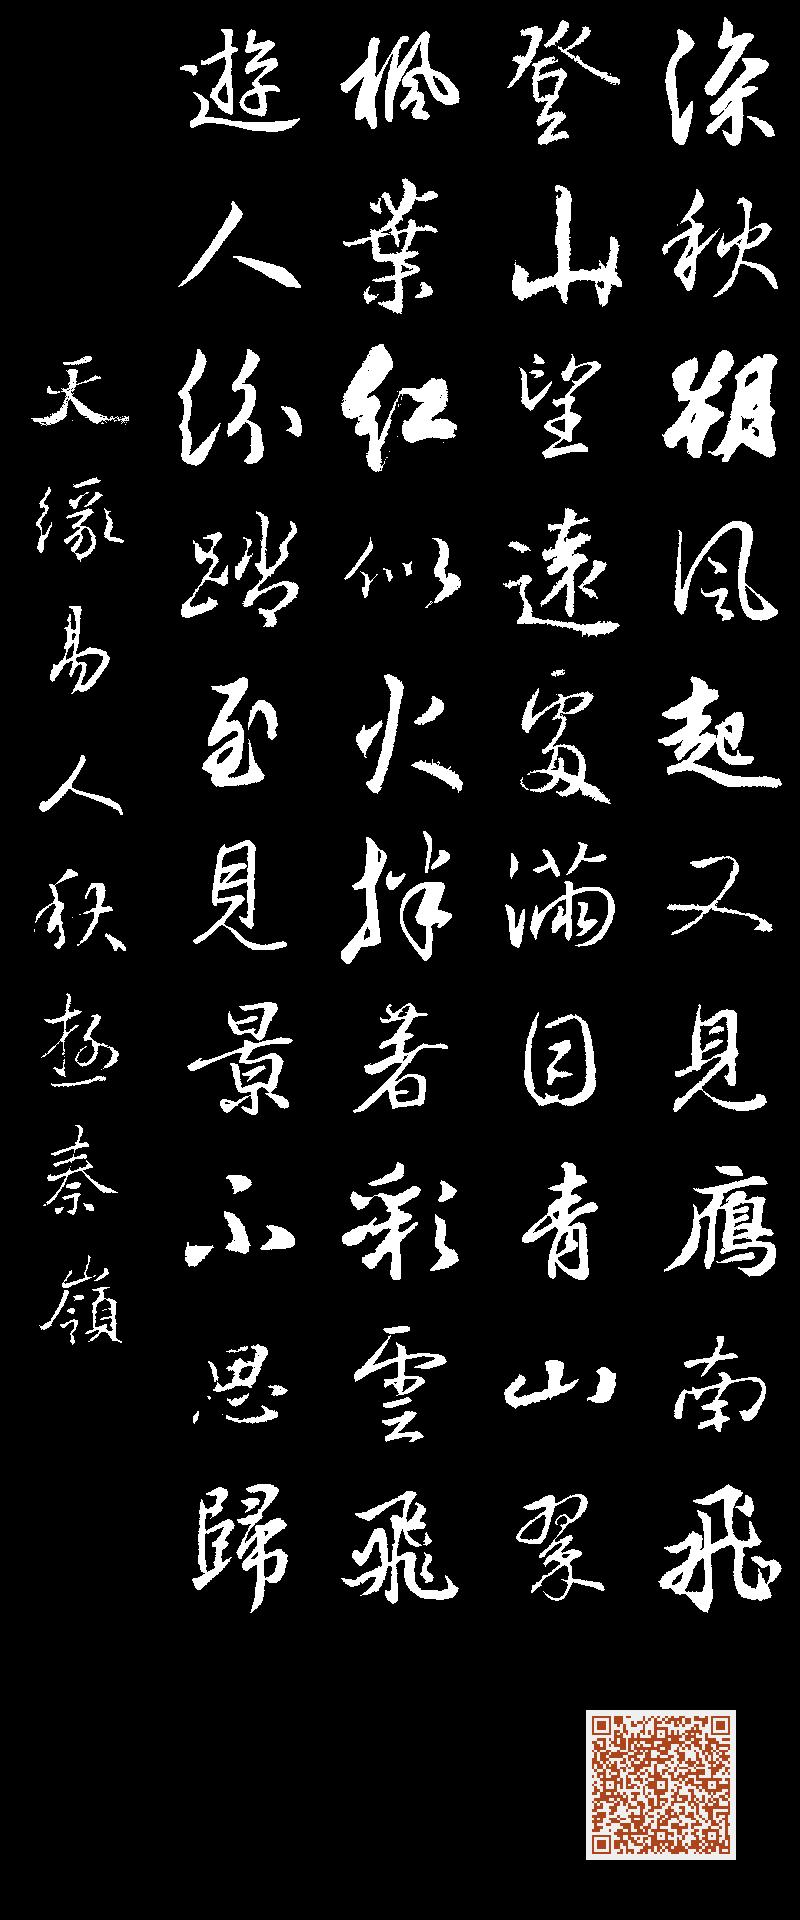 深秋朔風起又見鷹南飛
登山望遠處滿目青山翠
楓葉紅似火拌著彩雲飛
遊人紛踏至見景不思歸
天緣易人秋遊秦嶺